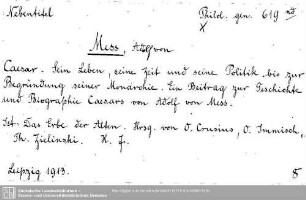 Nebentitel
Philol. gen. 619 nd
X
Mess, Adolf von
Caesar. Sein Leben, seine Zeit und seine Politik bis zur
Begründung seiner Monarchie. Ein Beitrag zur Geschichte
und Biographie Caesars von Adolf von Mess.
Das Erbe der Alten. Hrsg. von O. Crusius, O. Immisch,
Th. Zielinski. H. f.
Leipzig 1913.